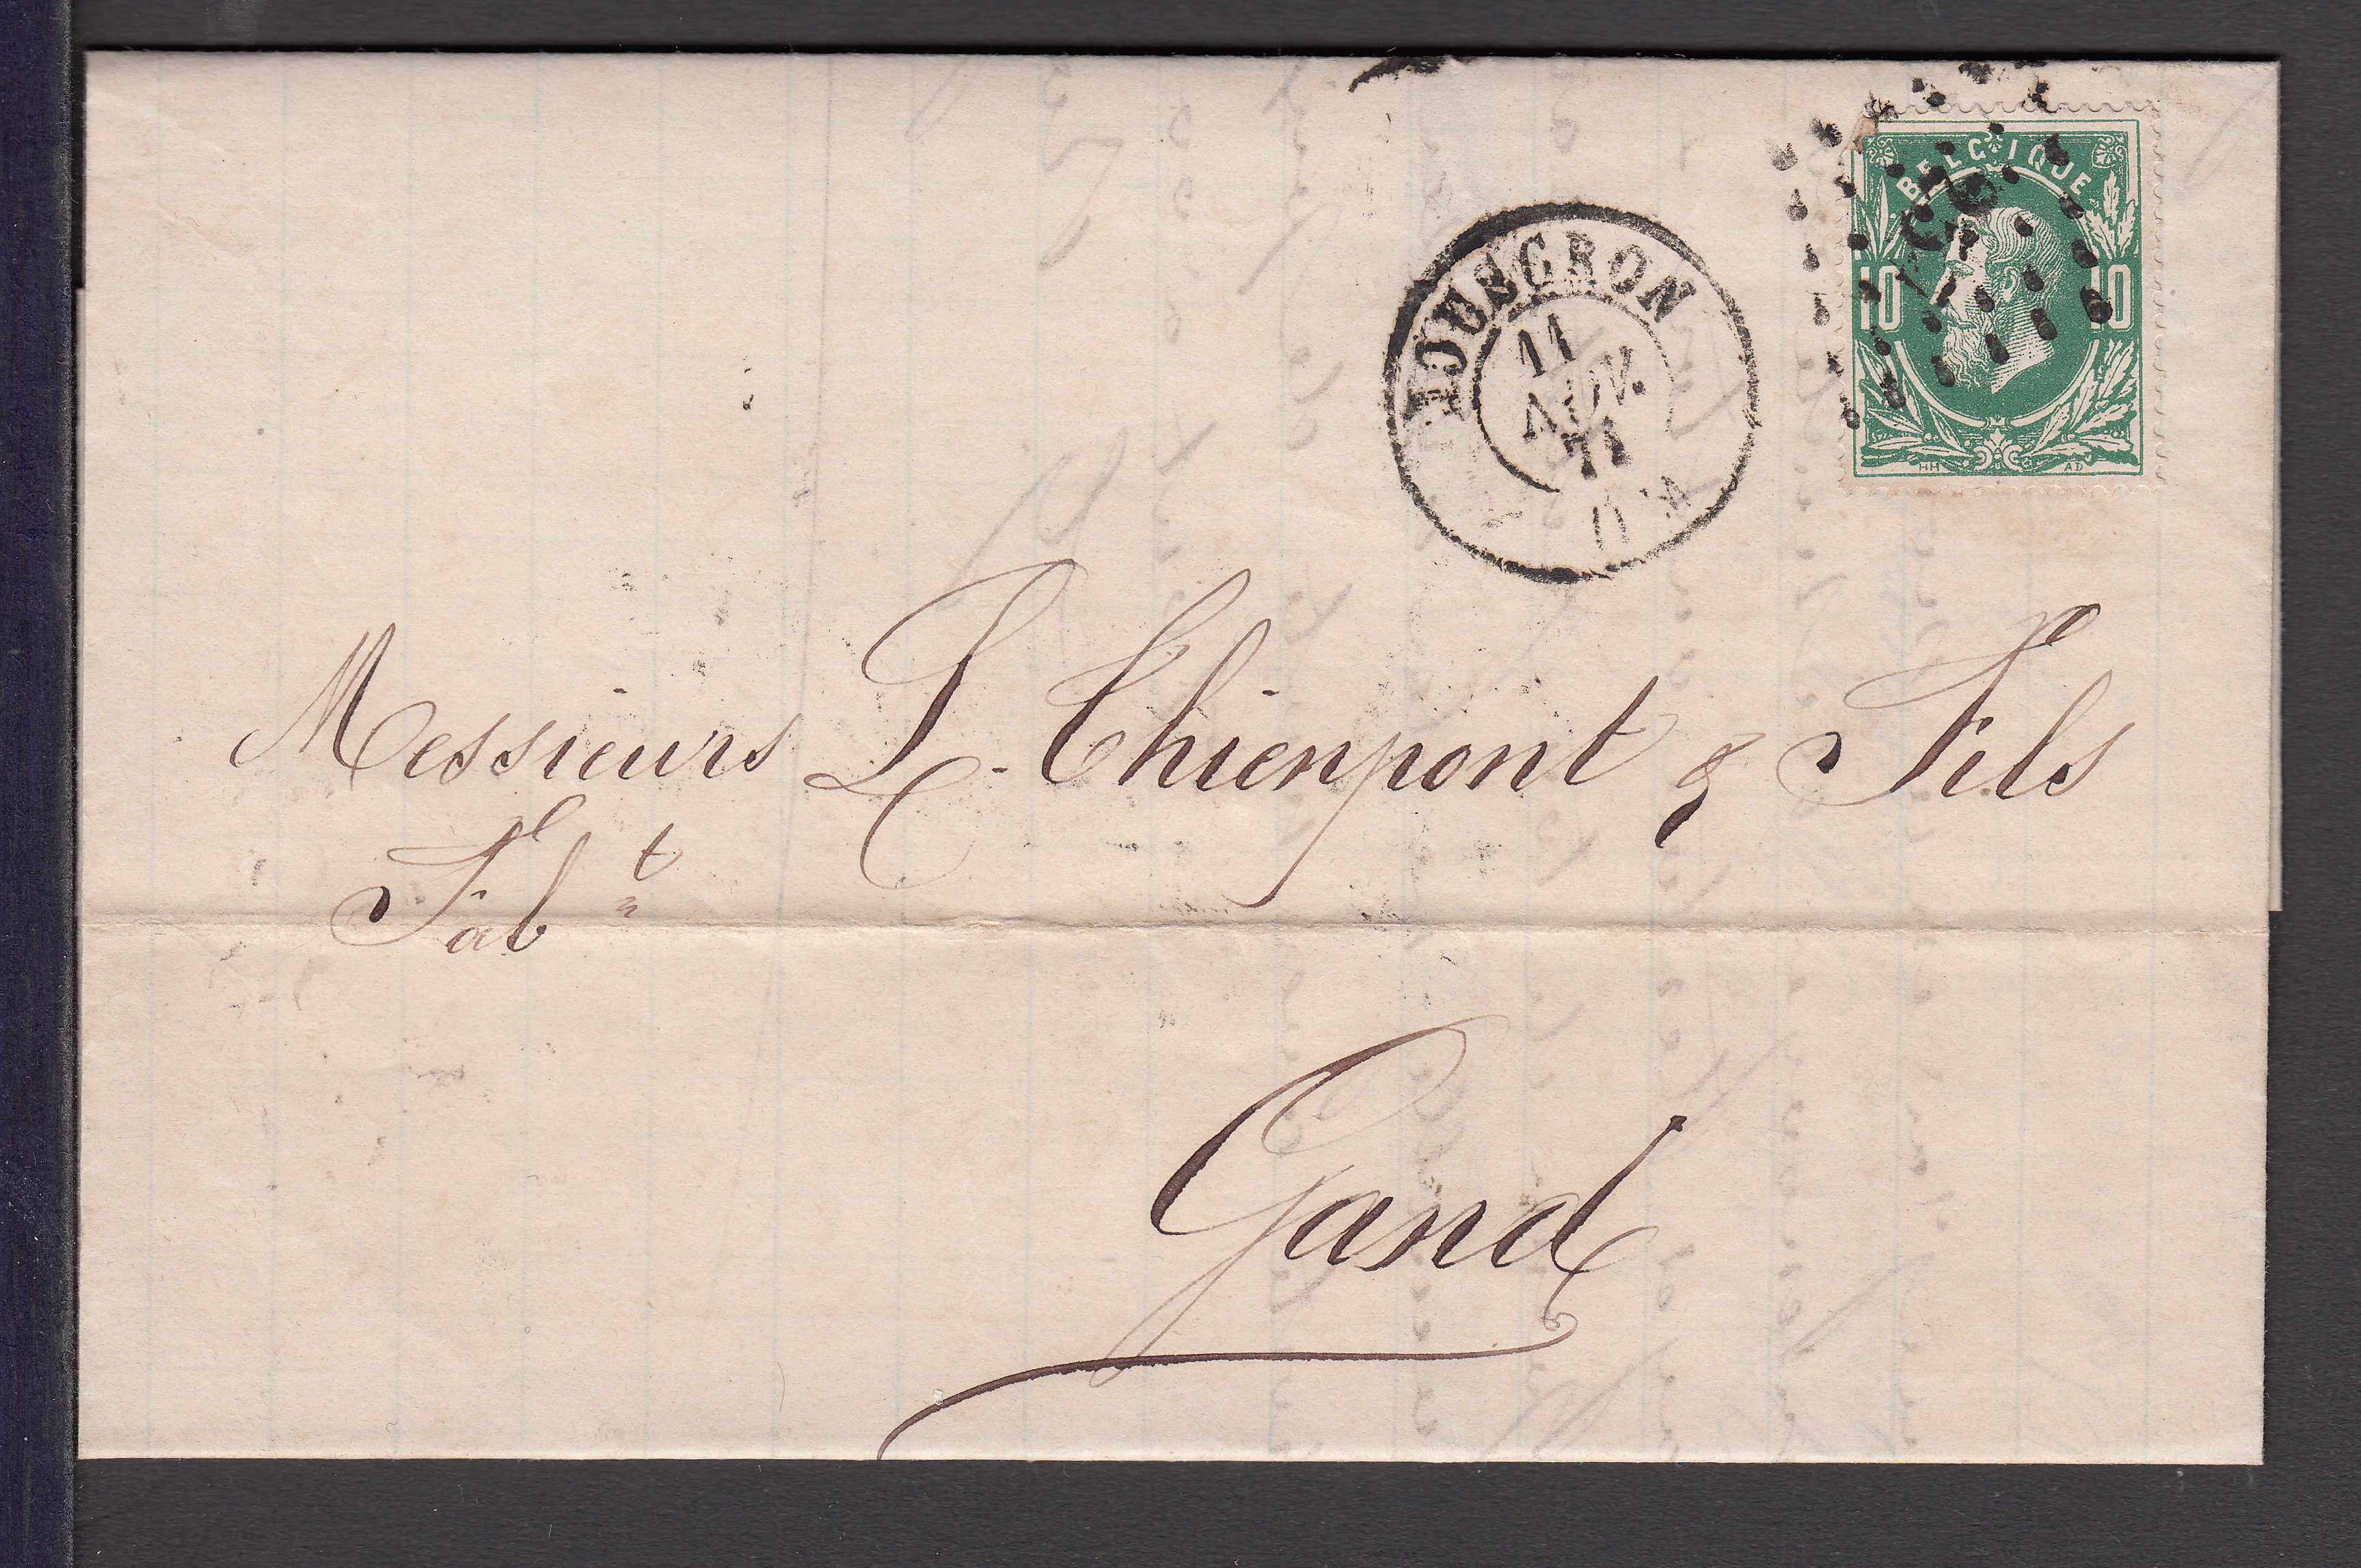 BELGIQUE
10 10
HH AD
MOUSCRON
11
NOV.
71
Messieurs L. Thienpont & Fils
Fabt
Gand